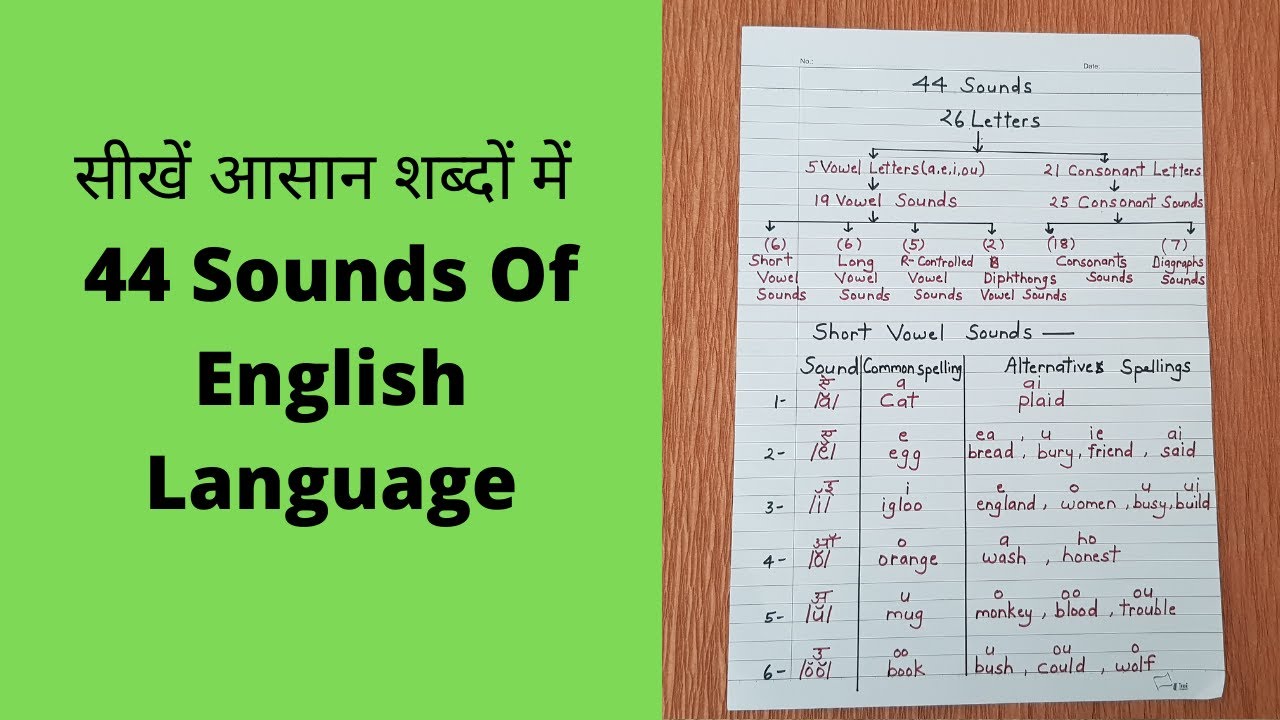 सीखें आसान शब्दों में
44 Sounds Of
English
Language
No.: Date:
44 Sounds
26 Letters
5 Vowel Letters (a,e,i,ou) 21 Consonant Letters
19 Vowel Sounds 25 Consonant Sounds
(6) (6) (5) (2) (18) (7)
Short Long R-Controlled Diphthongs Consonants Diggraphs
Vowel Vowel Vowel Vowel Sounds Sounds Sounds
Sounds Sounds Sounds
Short Vowel Sounds —
Sound Common spelling Alternatives Spellings
ऍ a ai
1- /ă/ Cat plaid
e ea , u ie ai
2- /ĕ/ egg bread , bury, friend , said
इ i e o u ui
3- /ĭ/ igloo england , women , busy, build
ऑ o a ho
4- /ŏ/ orange wash , honest
अ u o oo ou
5- /ŭ/ mug monkey , blood , trouble
उ oo u ou o
6- /ŏŏ/ book bush , could , wolf